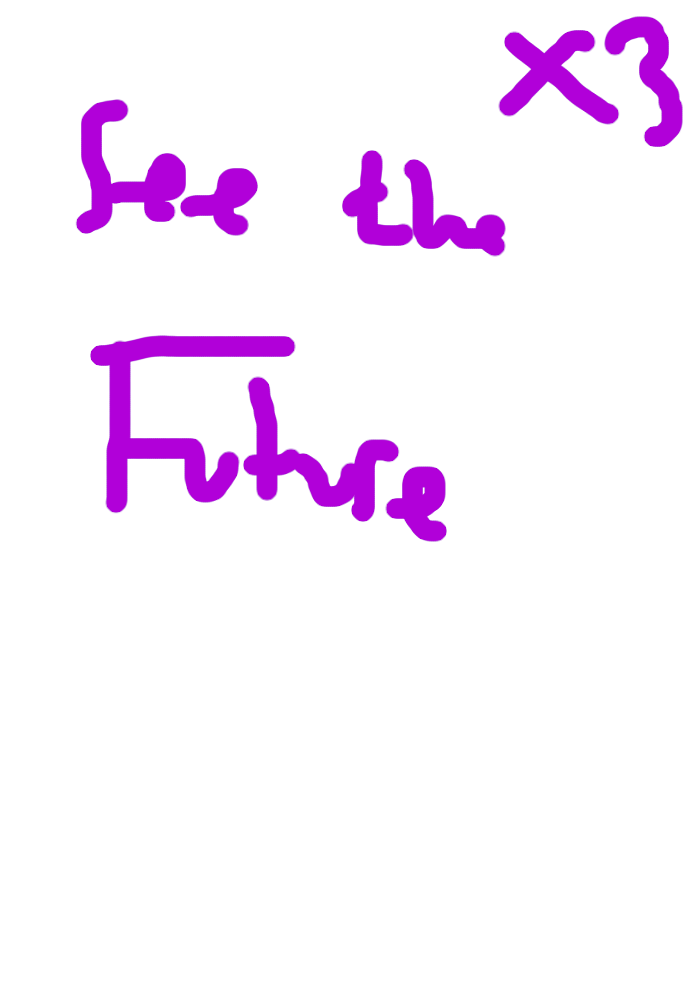 x3
See the
Future